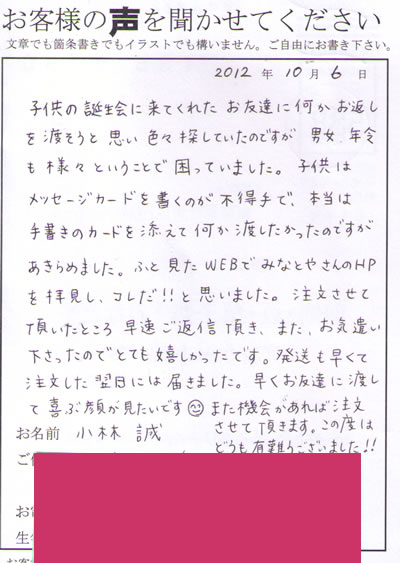 お客様の声を聞かせてください
文章でも箇条書きでもイラストでも構いません。ご自由にお書き下さい。
2012 年 10 月 6 日
子供の誕生会に来てくれた お友達に何か お返し
を渡そうと 思い 色々 探していたのですが 男女、年令
も 様々 ということで 困っていました。子供は
メッセージカードを書くのが 不得手で、本当は
手書きのカードを 添えて 何か 渡したかったのですが
あきらめました。ふと 見た WEBで みなとやさんのHP
を 拝見し、コレだ!!と 思いました。注文させて
頂いたところ 早速 ご返信 頂き、また、お気遣い
下さったのでとても 嬉しかったです。発送も 早くて
注文した 翌日には 届きました。早くお友達に 渡し
て 喜ぶ顔が見たいです また機会があれば注文
させて 頂きます。この度は
どうも 有難うございました!!
お名前 小林 誠
ご
お
生
お客様